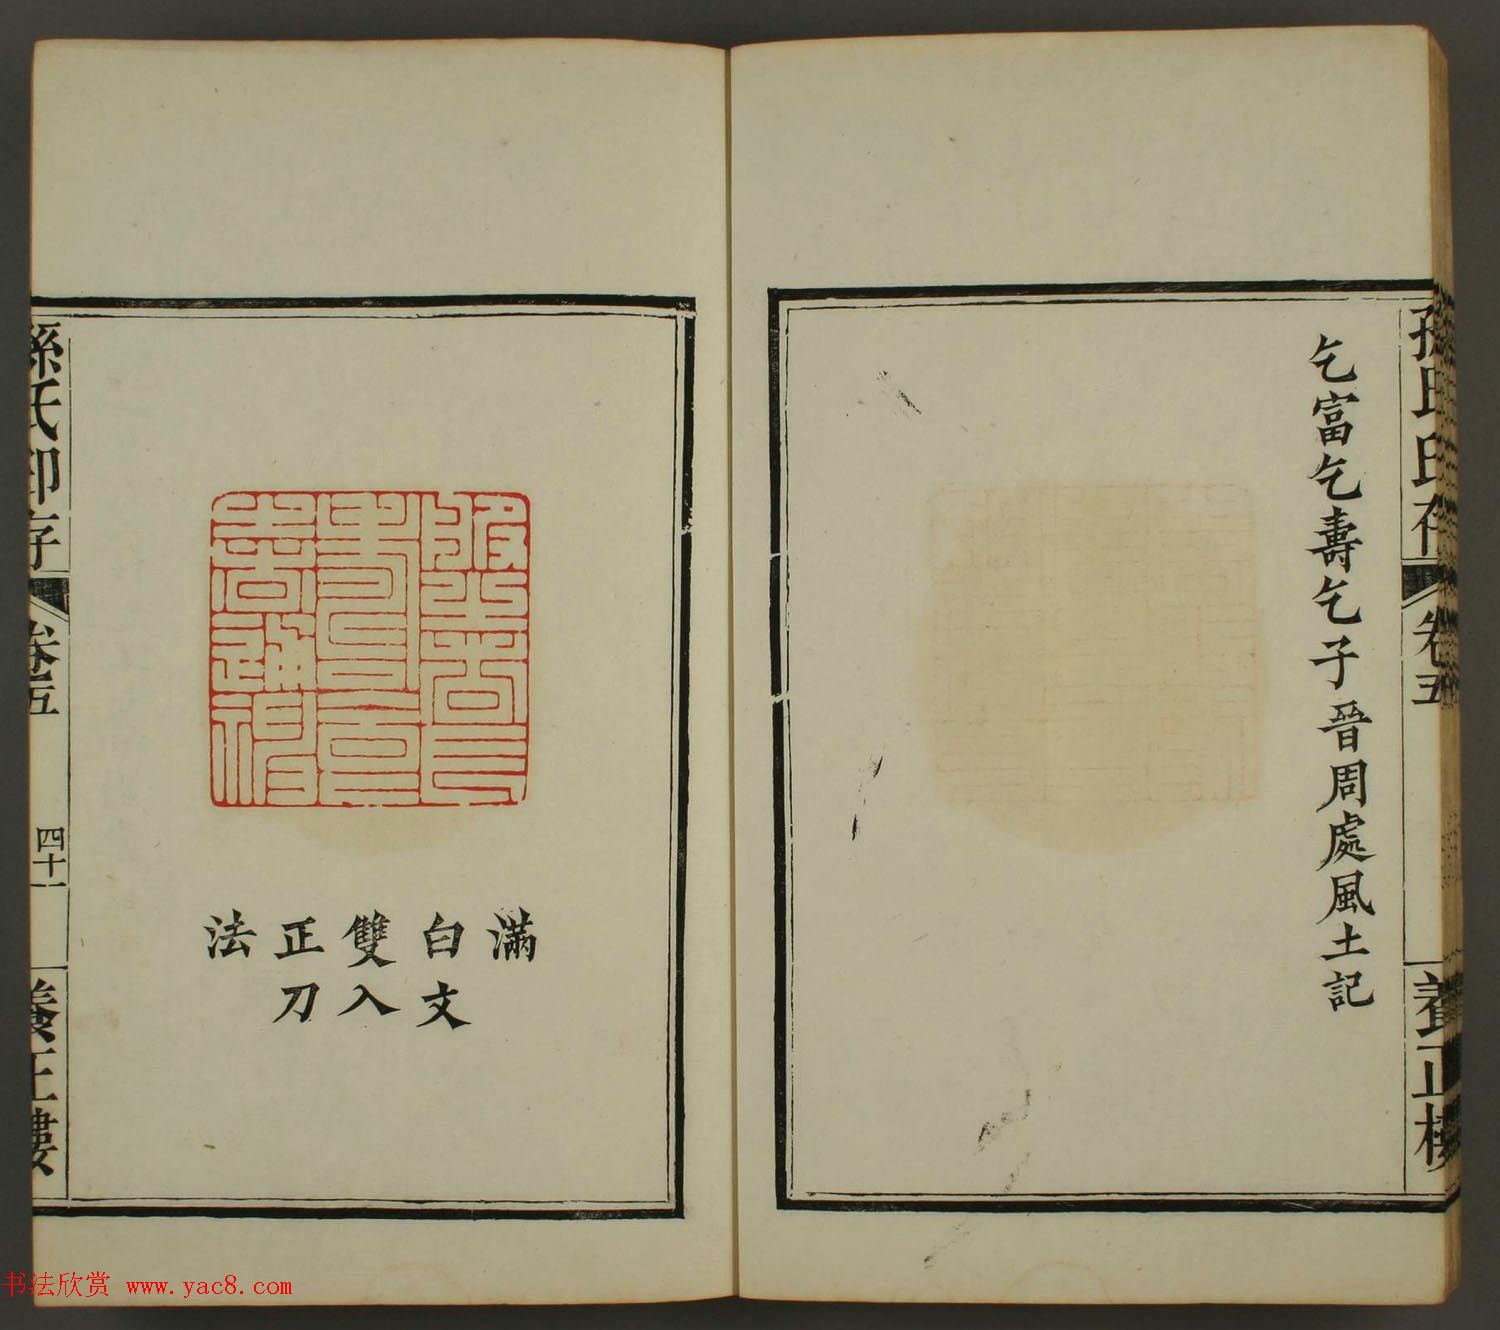 孫氏印存
卷五
養正樓
乞富乞壽乞子晉周處風土記
滿
白文
雙入
正刀
法
孫氏印存
卷五
四十一
養正樓
书法欣赏 www.yac8.com